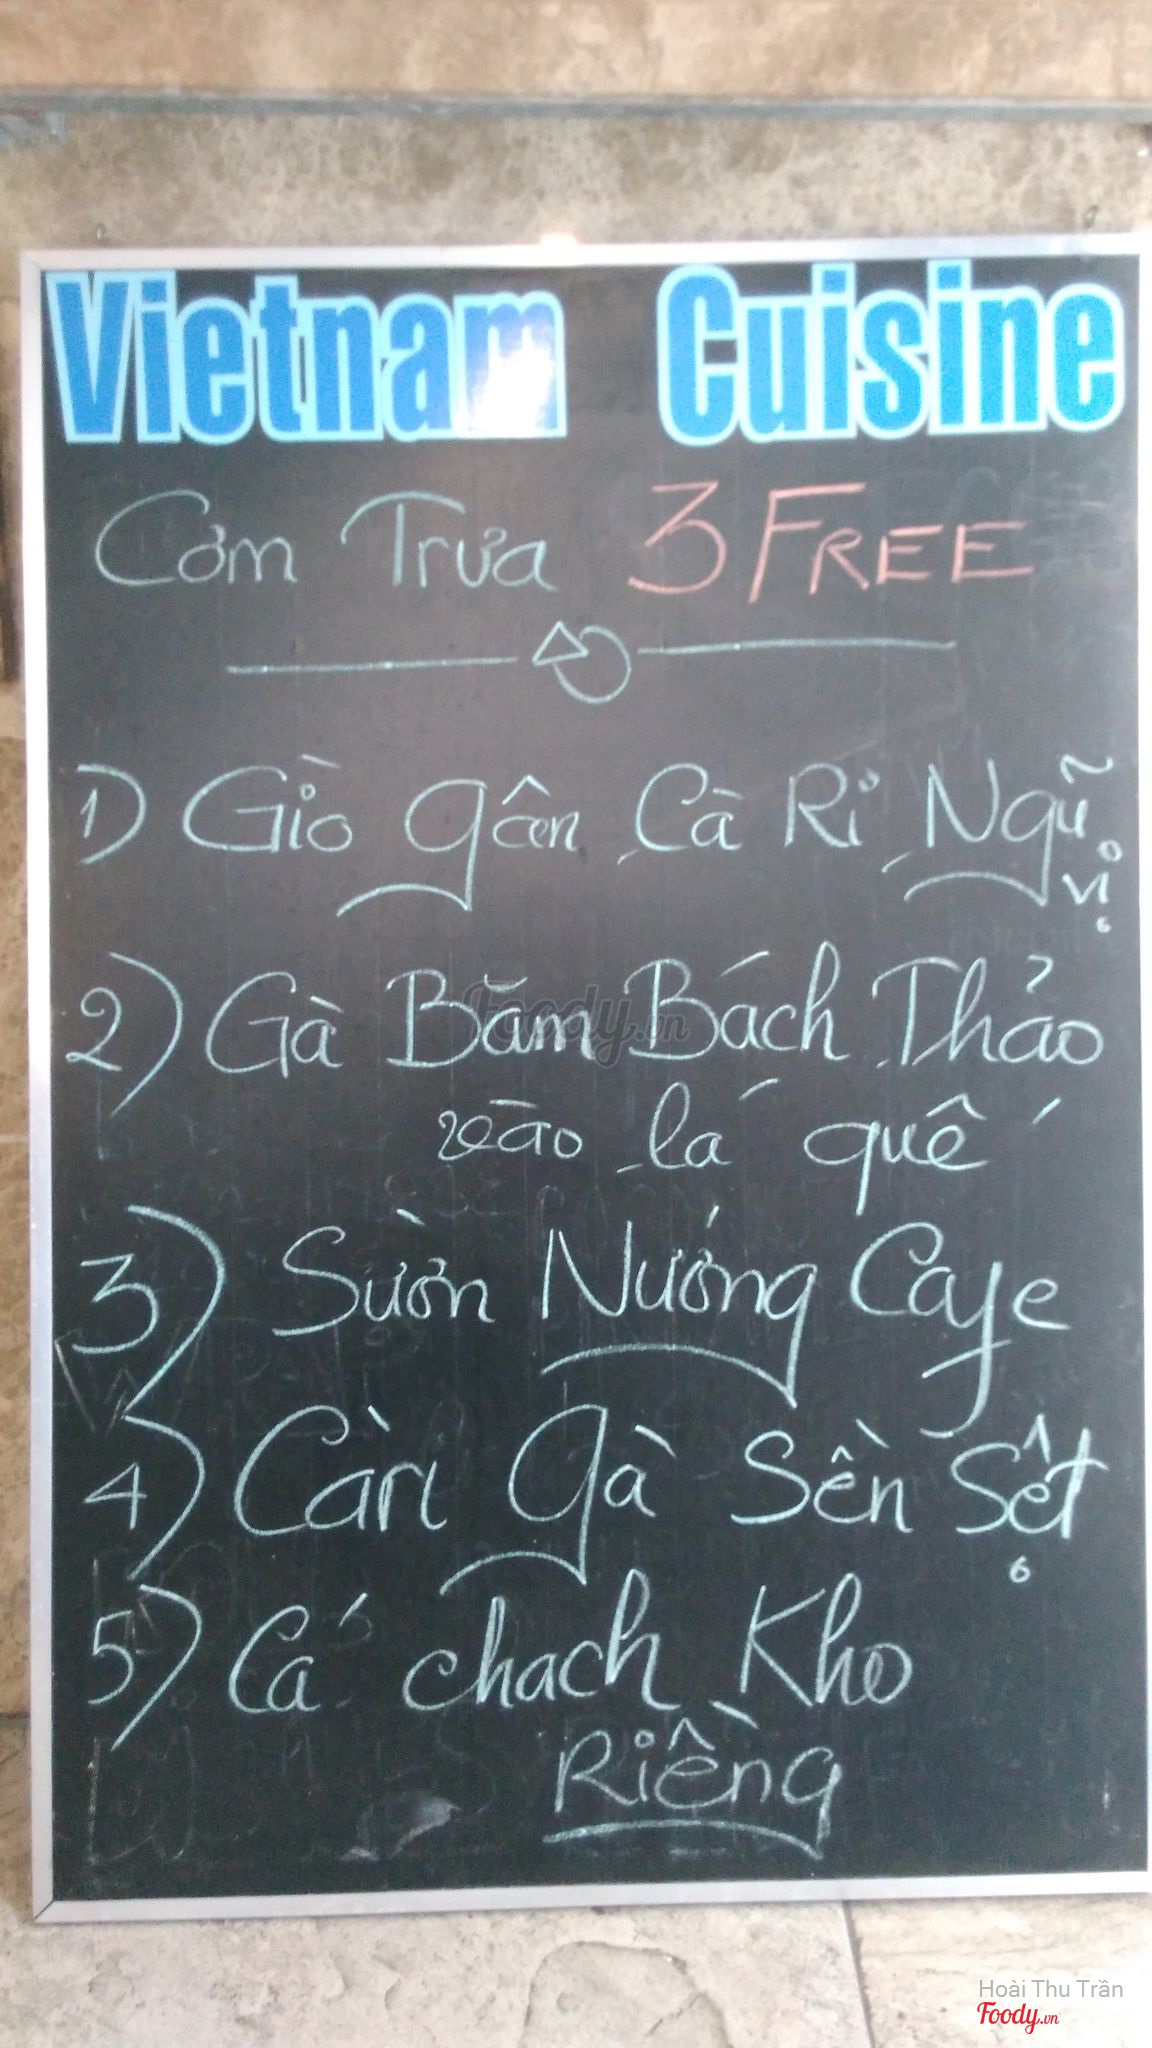 Vietnam Cuisine
Cơm Trưa 3 FREE
1) Giò gân Cà Ri Ngũ
vị
2) Gà Băm Bách Thảo
xào lá quế
3) Sườn Nướng Caye
4) Càri gà Sền Sệt
5) Cá chạch Kho
Riềng
Foody.vn
Hoài Thu Trần
Foody.vn